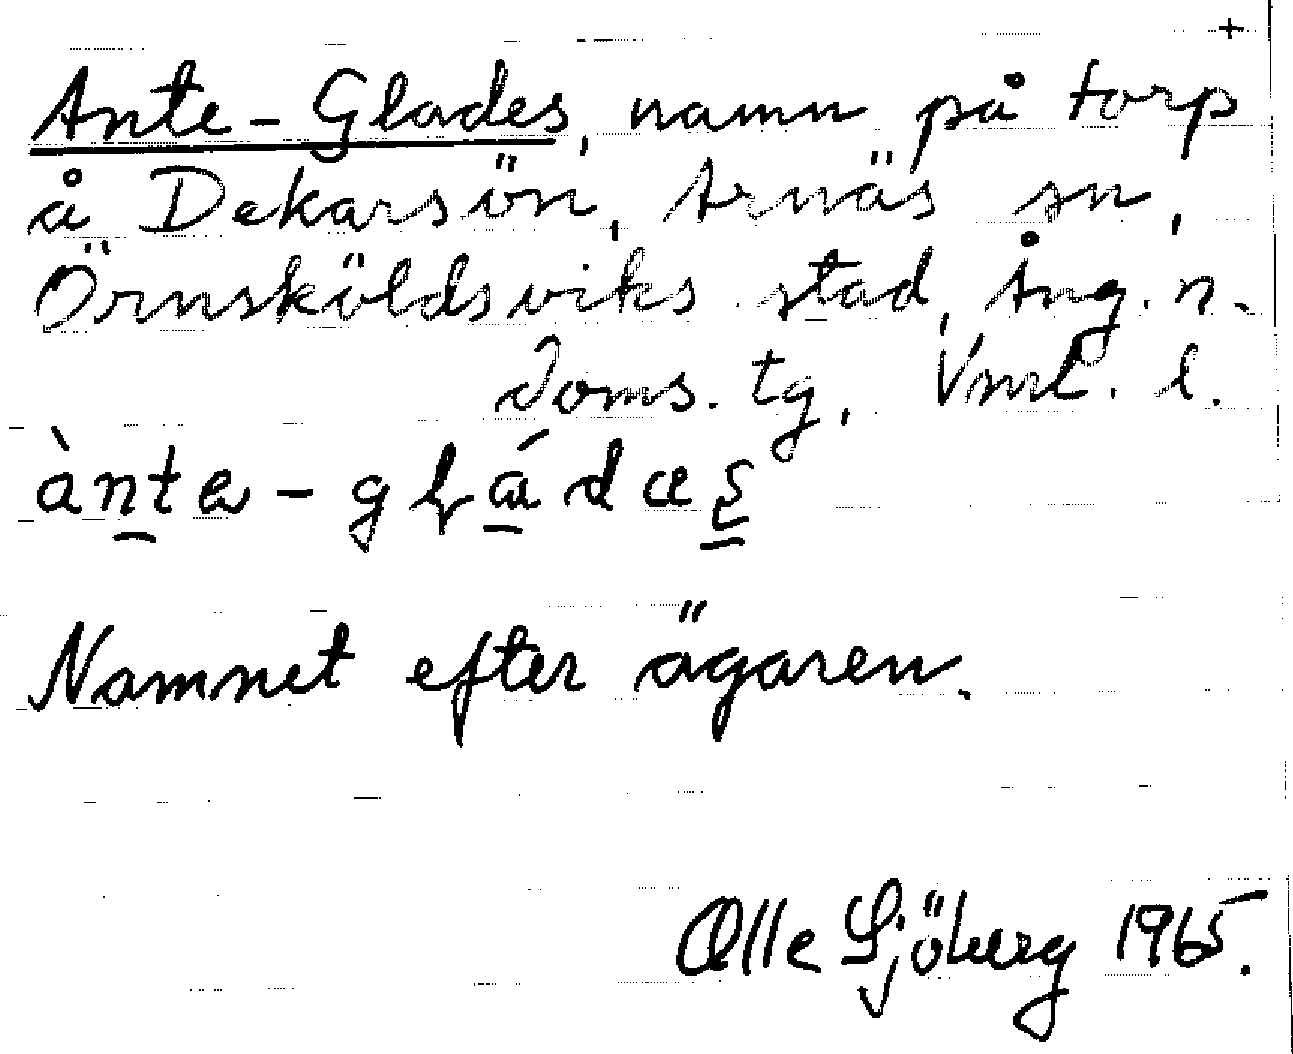 Ante-Glades, namn på torp
å Dekarsön, Arnäs sn,
Örnsköldsviks stad, Ång. n.
Doms. tg, Vnrl. l.
ànte-gládes
Namnet efter ägaren.
Olle Sjöberg 1965.